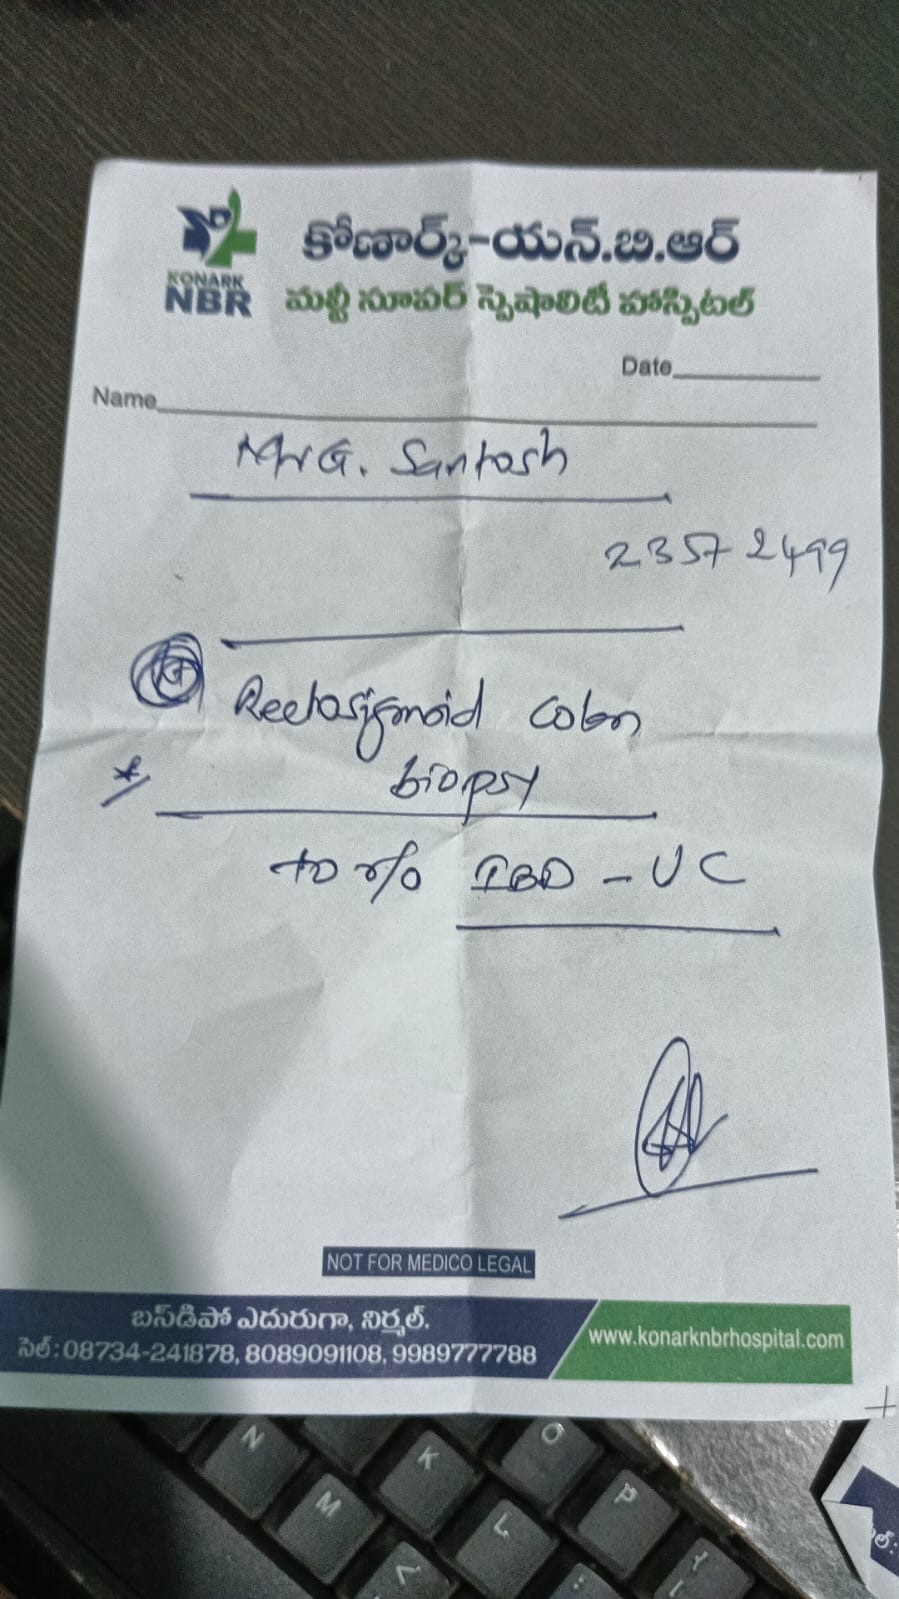 కోణార్క్-యన్.బి.ఆర్
KONARK
NBR
మల్టీ సూపర్ స్పెషాలిటీ హాస్పిటల్
Date
Name
Mr G. Santosh
23572499
Rectosigmoid colon
*
biopsy
to r/o IBD - UC
NOT FOR MEDICO LEGAL
బస్‌డిపో ఎదురుగా, నిర్మల్.
సెల్: 08734-241878, 8089091108, 9989777788
www.konarknbrhospital.com
N
K
O
M
L
P